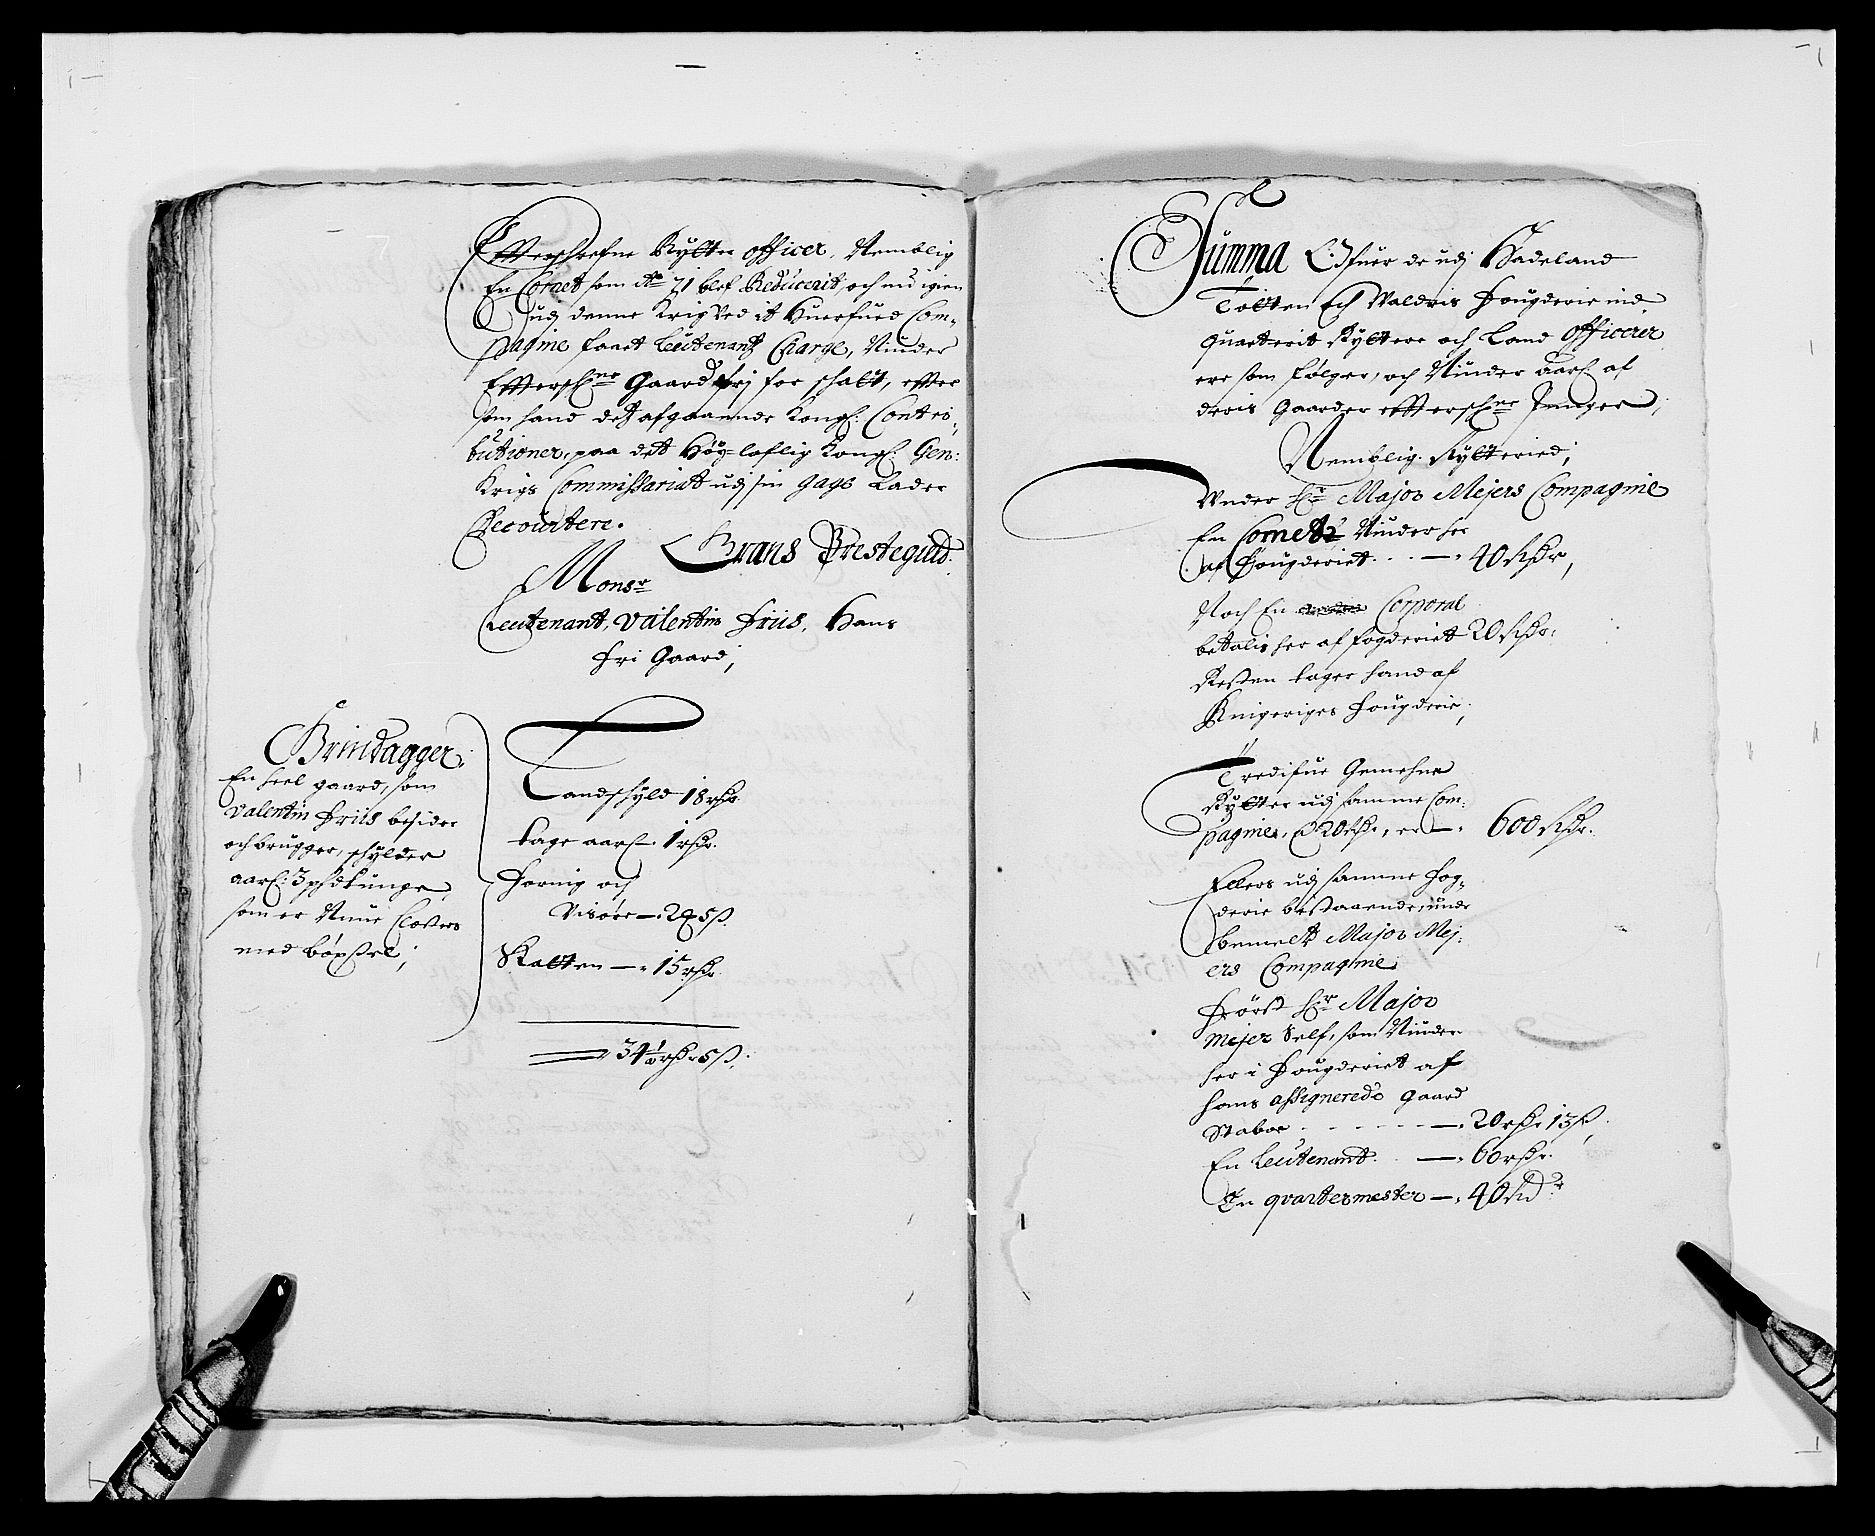 Effterschrefne Rytter officer, Nemblig
En Cornet som Ao 71 blef Reducerit, och nu igien
udj denne Krig ved it Huerfued Com-
pagnie faaet Leutenantz Charge, Niuder
Effterschne Gaard frj for schatt, effter
som hand det afgaaende Kongl: Contri-
butioner, paa det Høy-loflig Kongl: Gen:
Krigs Commissariat udj sin gage Lader
Decourtere.
Grans Prestegield.
Monsr
Leutenant, Valentin Friis, Hans
fri Gaard;
Grindagger;
En heel gaard, som
Valentin Friis besider
och brugger, schylder
aarl: 3 schd tunge,
som er Closters
med bøxsel;
Landschyld 18 rdr.
tage aarl. 1 rdr.
Fornig och
Visøre — 2 5 ß.
Skatten — 15 rdr
34½ rdr 5 ß.
Summa Ofuer de udj Hadeland
Totten Och Valdris Fougderie ind-
quarterit Ryttere och Land Officerer
ere som følger, och Niuder aarl af
deris Gaarder effterschne Penger,
Nemblig Rytteried;
Under Hr Major Mejers Compagnie
En Cornett Niuder her
af Fougderiet — 40 Rdr,
Noch En Corporal
betalis her af fogderiet 20 Rdr.
Resten tager hand af
Ringeriges Fougderie;
Tredifue Gemehne
Rytter udj samme Com-
pagnie, a 20 Rdr, er — 600 Rdr.
Ellers udj samme Fog-
derie bestaaende, und
bemelt Major Mej-
ers Compagnie
Først Hr Major
Mejer Self, som Niuder
her i Fougderiet af
hans assignerede gaard
Staboe — 20 rdr 13 ß.
En Leutenant — 60 rdr.
En qvartermester — 40 Rdr